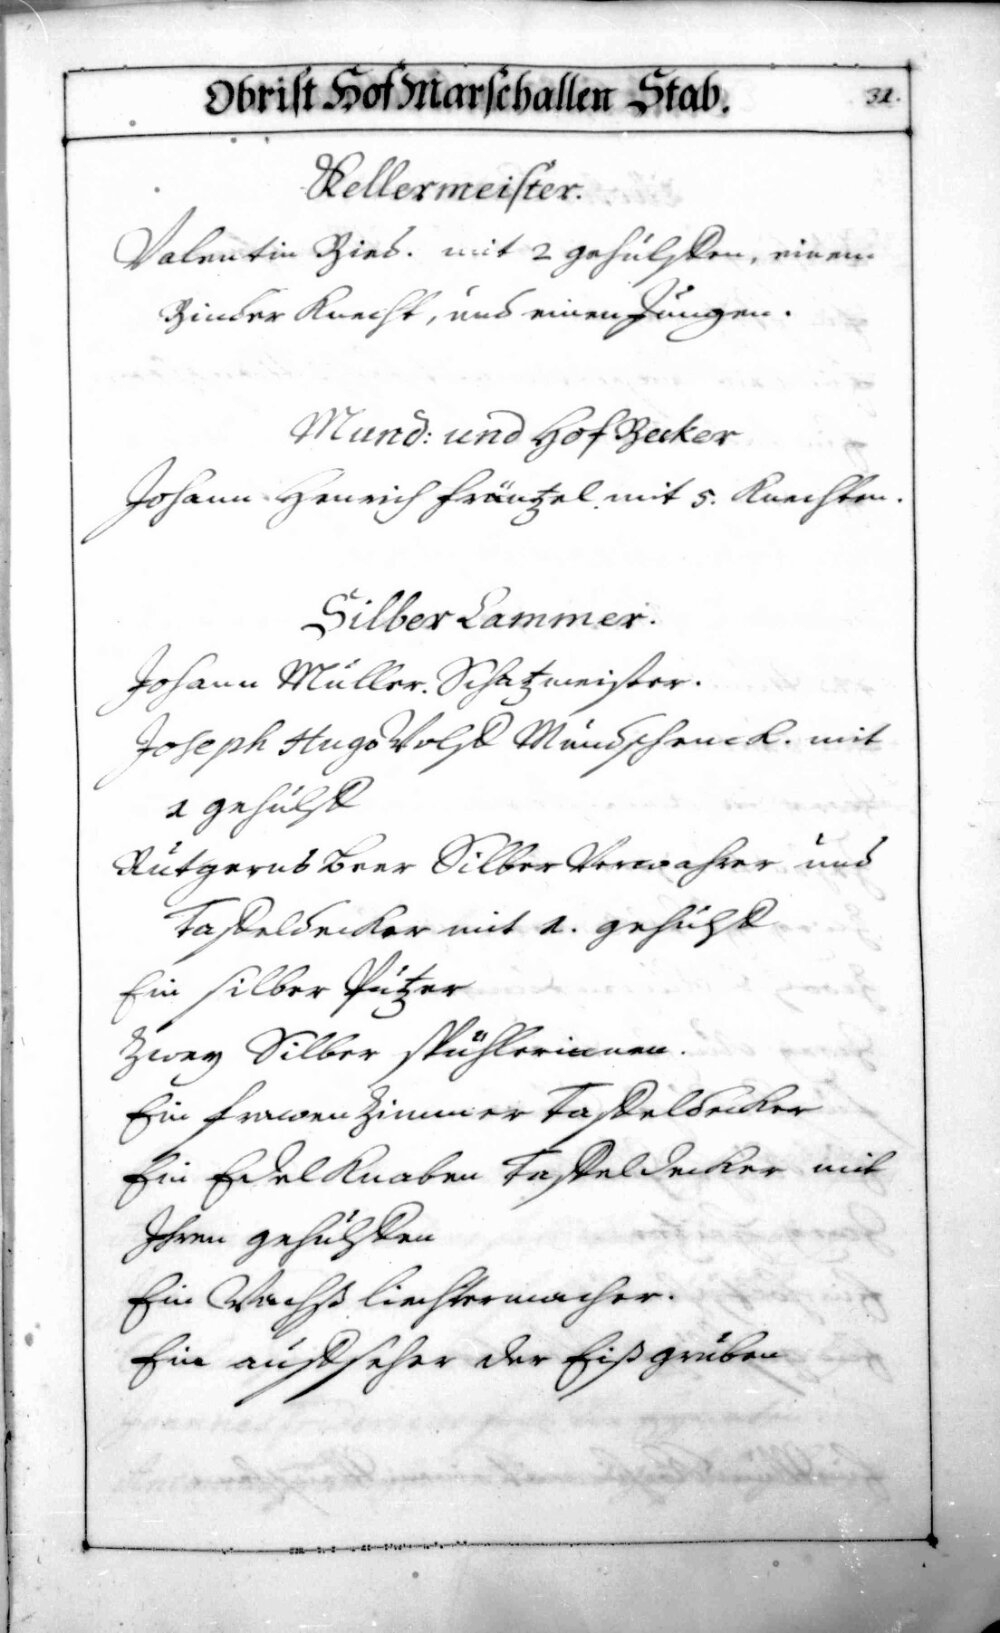 Obrist Hof Marschallen Stab. 31.
Kellermeister.
Valentin Ries. mit 2 gehülffen, einem
Binder Knecht, und einen Jungen.
Mund: und Hof Becker
Johann Henrich Fräntzel mit 5. Knechten.
Silber Cammer.
Johann Müller. Schatzmeister.
Joseph Hugo Wolff Mundschenck. mit
1 gehülff
Rutgerus Beer Silber Verwahrer und
Taffeldecker mit 1. gehülff
Ein silber Putzer
Zwey Silber spühlerinnen.
Ein frawen Zimmer Taffeldecker
Ein Edel Knaben Taffeldecker mit
Ihren gehülffen
Ein Wachß liechtermacher.
Ein auffseher der Eiß gruben